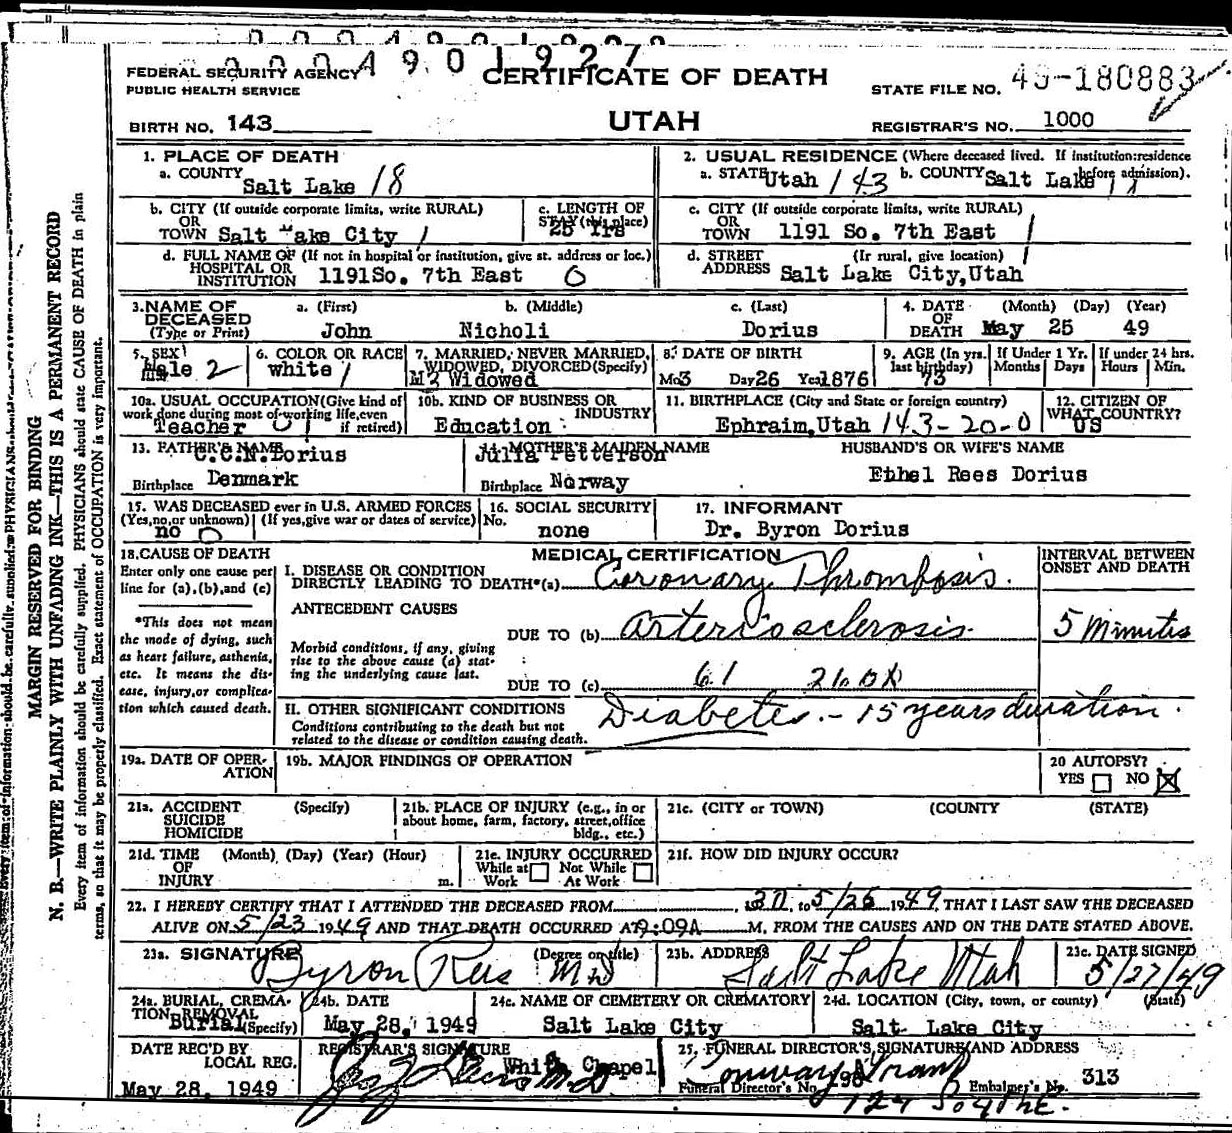 0 0 0 4 9 0 1 9 2 7
FEDERAL SECURITY AGENCY
PUBLIC HEALTH SERVICE
CERTIFICATE OF DEATH
STATE FILE NO. 49-180883
BIRTH NO. 143
UTAH
REGISTRAR'S NO. 1000
1. PLACE OF DEATH
a. COUNTY
Salt Lake 18
2. USUAL RESIDENCE (Where deceased lived. If institution:residence before admission).
a. STATE Utah 143 b. COUNTY Salt Lake
b. CITY (If outside corporate limits, write RURAL)
OR
TOWN Salt Lake City 1
c. LENGTH OF
STAY (in this place)
25 Yrs
c. CITY (If outside corporate limits, write RURAL)
OR
TOWN 1191 So. 7th East 1
d. FULL NAME OF (If not in hospital or institution, give st. address or loc.)
HOSPITAL OR
INSTITUTION 1191So. 7th East 0
d. STREET (If rural, give location)
ADDRESS Salt Lake City,Utah
3.NAME OF
DECEASED
(Type or Print)
a. (First) b. (Middle) c. (Last)
John Nicholi Dorius
4. DATE (Month) (Day) (Year)
OF
DEATH May 25 49
5. SEX
Male 2
6. COLOR OR RACE
white 1
7. MARRIED, NEVER MARRIED,
WIDOWED, DIVORCED(Specify)
Widowed
8. DATE OF BIRTH
Mo3 Day26 Yea1876
9. AGE (In yrs.
last birthday)
73
If Under 1 Yr.
Months Days
If under 24 hrs.
Hours Min.
10a. USUAL OCCUPATION(Give kind of
work done during most of working life,even
if retired)
Teacher
10b. KIND OF BUSINESS OR
INDUSTRY
Education
11. BIRTHPLACE (City and State or foreign country)
Ephraim,Utah 143-20-0
12. CITIZEN OF
WHAT COUNTRY?
US
13. FATHER'S NAME
C.C.N.Dorius
Birthplace Denmark
14. MOTHER'S MAIDEN NAME
Julia Petterson
Birthplace Norway
HUSBAND'S OR WIFE'S NAME
Ethel Rees Dorius
15. WAS DECEASED ever in U.S. ARMED FORCES
(Yes,no,or unknown) (If yes,give war or dates of service)
no 0
16. SOCIAL SECURITY
No.
none
17. INFORMANT
Dr. Byron Dorius
18.CAUSE OF DEATH
Enter only one cause per
line for (a),(b),and (c)
*This does not mean
the mode of dying, such
as heart failure, asthenia,
etc. It means the dis-
ease, injury,or complica-
tion which caused death.
MEDICAL CERTIFICATION
INTERVAL BETWEEN
ONSET AND DEATH
I. DISEASE OR CONDITION
DIRECTLY LEADING TO DEATH*(a) Coronary Thrombosis.
ANTECEDENT CAUSES
DUE TO (b) arteriosclerosis. 5 Minutes
Morbid conditions, if any, giving
rise to the above cause (a) stat-
ing the underlying cause last.
DUE TO (c) 61
II. OTHER SIGNIFICANT CONDITIONS
Conditions contributing to the death but not
related to the disease or condition causing death.
Diabetes. - 15 years duration.
19a. DATE OF OPER-
ATION
19b. MAJOR FINDINGS OF OPERATION
20 AUTOPSY?
YES NO X
21a. ACCIDENT
SUICIDE
HOMICIDE
(Specify)
21b. PLACE OF INJURY (e.g., in or
about home, farm, factory, street,office
bldg., etc.)
21c. (CITY or TOWN) (COUNTY) (STATE)
21d. TIME (Month) (Day) (Year) (Hour)
OF
INJURY m.
21e. INJURY OCCURRED
While at Not While
Work At Work
21f. HOW DID INJURY OCCUR?
22. I HEREBY CERTIFY THAT I ATTENDED THE DECEASED FROM , to 5/25 1949, THAT I LAST SAW THE DECEASED
ALIVE ON 5/23 1949 AND THAT DEATH OCCURRED AT 9:09A M, FROM THE CAUSES AND ON THE DATE STATED ABOVE.
23a. SIGNATURE (Degree or title)
Byron Rees MD
23b. ADDRESS
Salt Lake Utah
23c. DATE SIGNED
5/27/49
24a. BURIAL, CREMA-
TION, REMOVAL
(Specify)
Burial
24b. DATE
May 28, 1949
24c. NAME OF CEMETERY OR CREMATORY
Salt Lake City
24d. LOCATION (City, town, or county) (State)
Salt Lake City
DATE REC'D BY
LOCAL REG.
May 28, 1949
REGISTRAR'S SIGNATURE
White Chapel
25. FUNERAL DIRECTOR'S SIGNATURE AND ADDRESS
Funeral Director's No. Embalmer's No. 313
MARGIN RESERVED FOR BINDING
N. B.—WRITE PLAINLY WITH UNFADING INK—THIS IS A PERMANENT RECORD
Every item of information should be carefully supplied. PHYSICIANS should state CAUSE OF DEATH in plain
terms, so that it may be properly classified. Exact statement of OCCUPATION is very important.